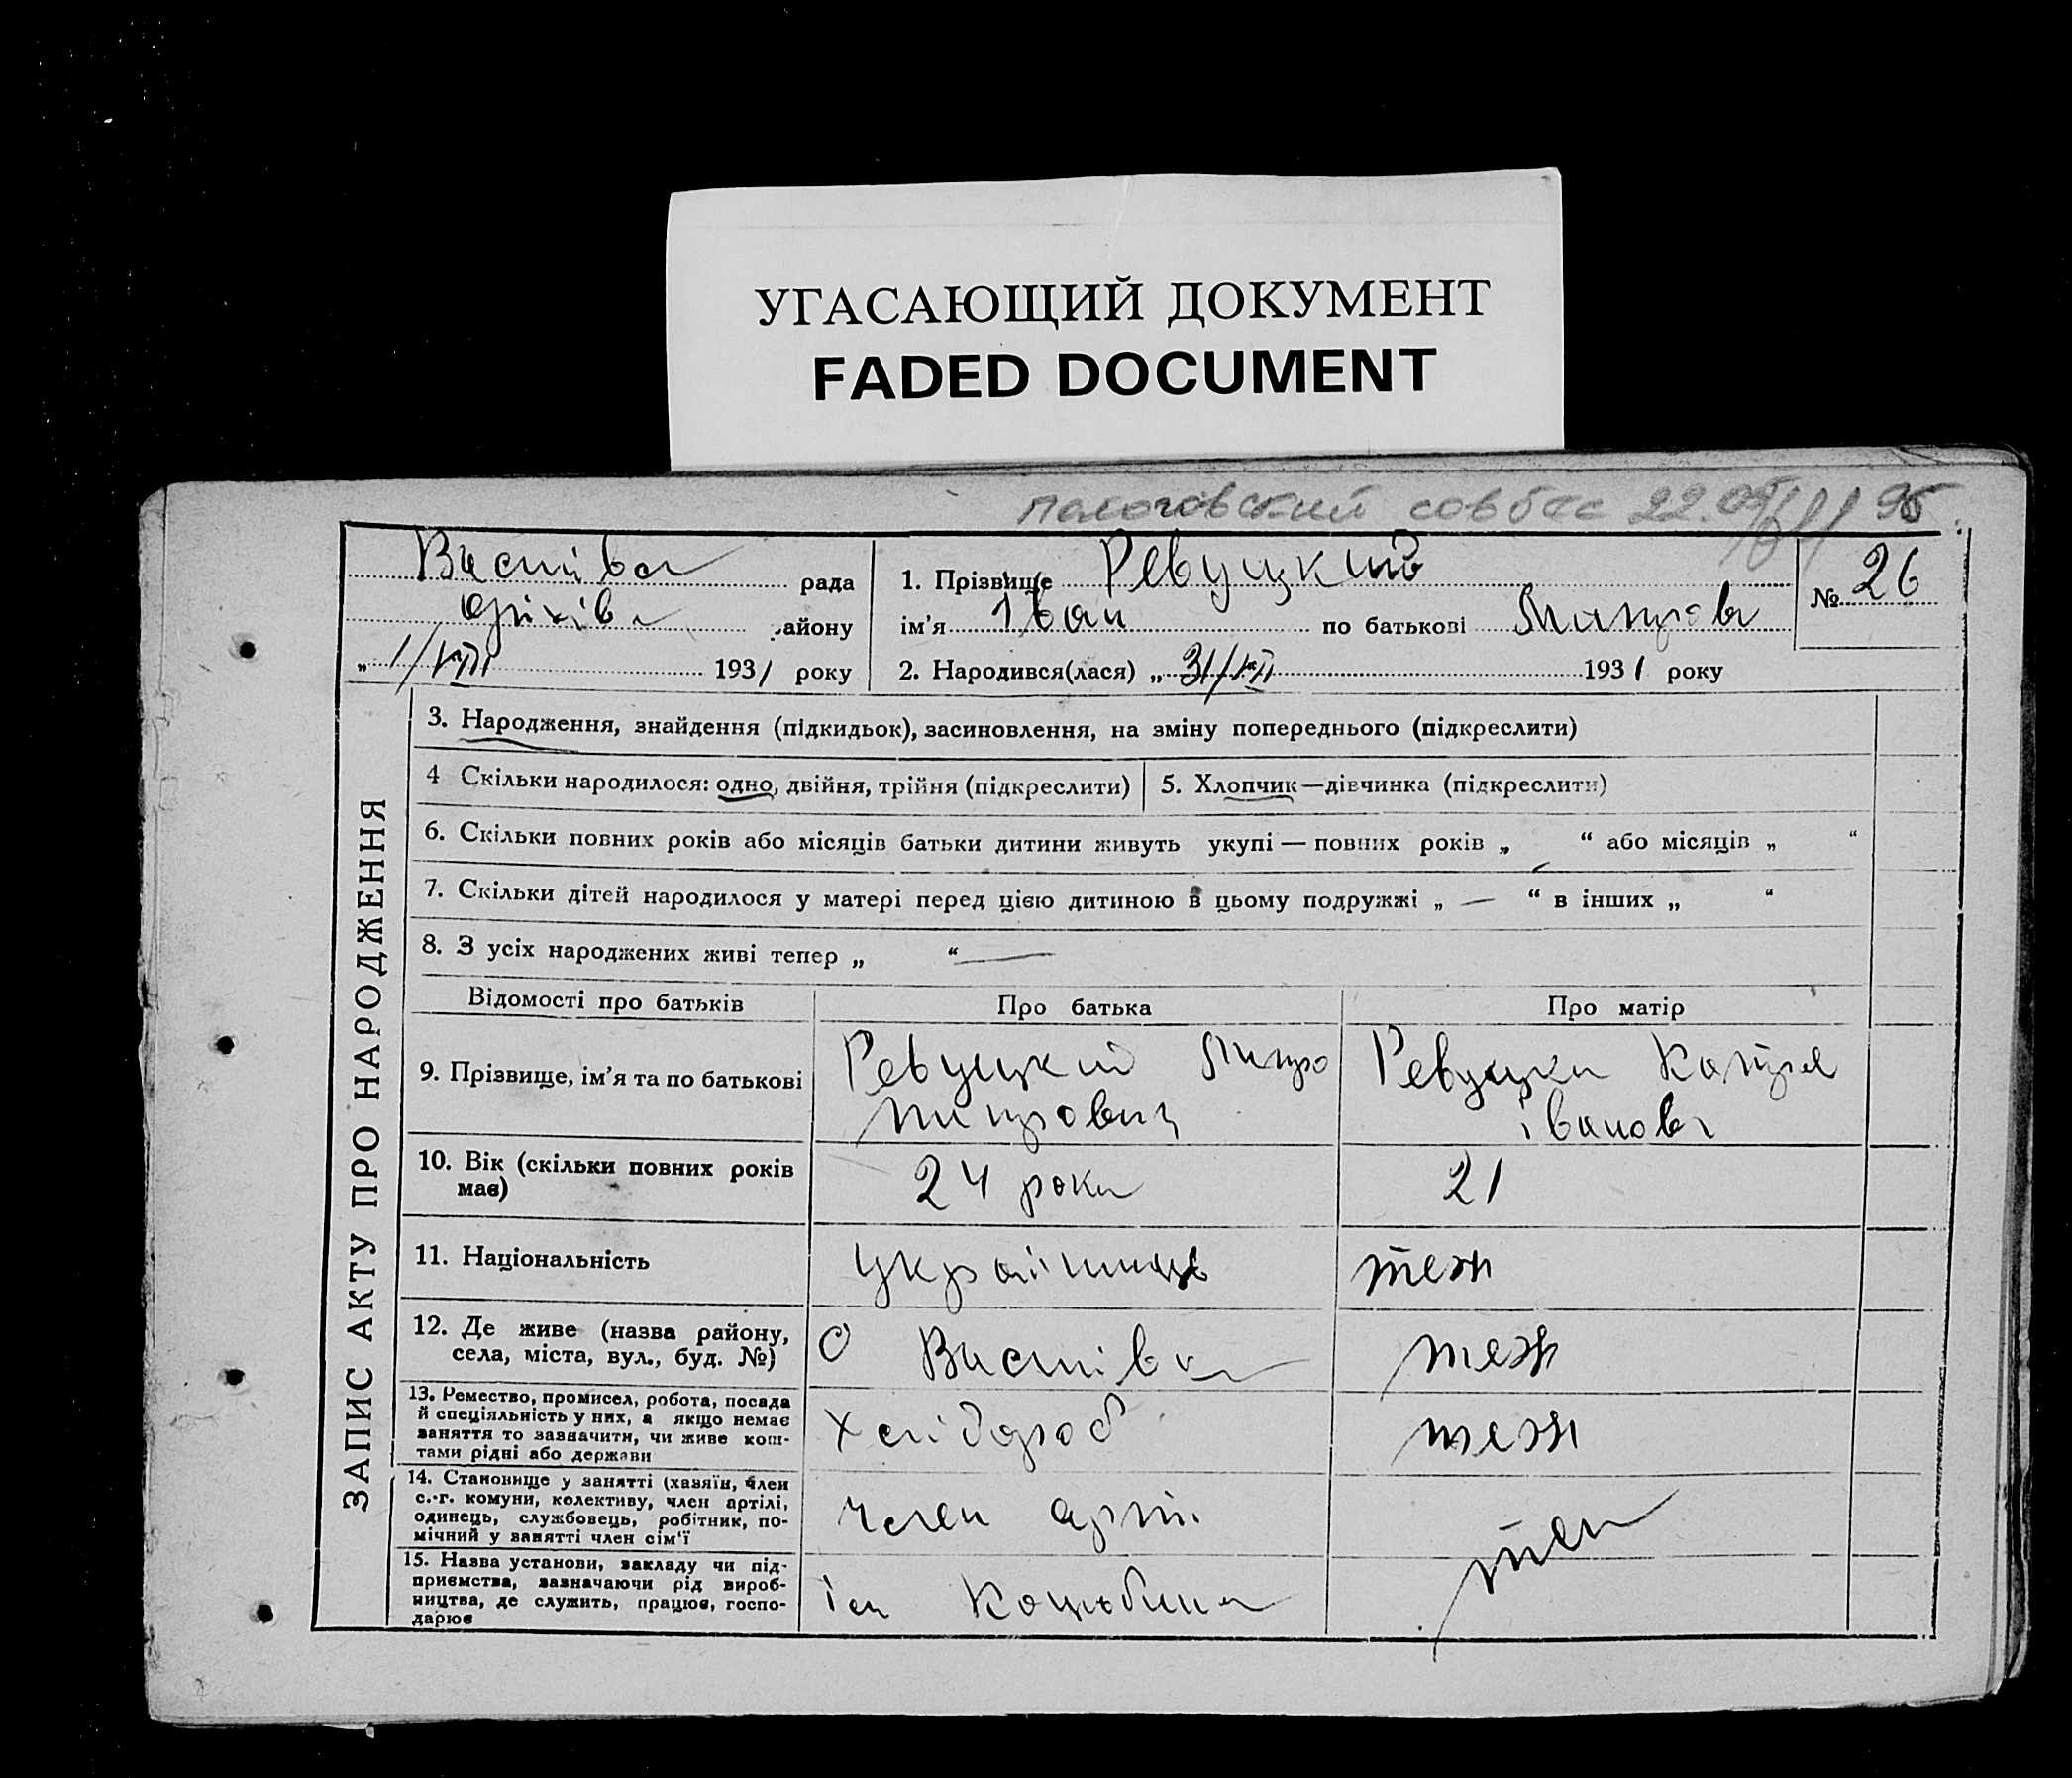 УГАСАЮЩИЙ ДОКУМЕНТ
FADED DOCUMENT
пологовский совбес 22.05 95
рада
1. Прізвище Ревуцкий
№ 26
району
ім'я Іван по батькові Митров
„ 1/VIII 1931 року
2. Народився(лася) „ 31/VII 1931 року
ЗАПИС АКТУ ПРО НАРОДЖЕННЯ
3. Народження, знайдення (підкидьок), засиновлення, на зміну попереднього (підкреслити)
4 Скільки народилося: одно, двійня, трійня (підкреслити)
5. Хлопчик—дівчинка (підкреслити)
6. Скільки повних років або місяців батьки дитини живуть укупі — повних років „ “ або місяців „ “
7. Скільки дітей народилося у матері перед цією дитиною в цьому подружжі „ — “ в інших „ “
8. З усіх народжених живі тепер „ “ —
Відомості про батьків
Про батька
Про матір
9. Прізвище, ім'я та по батькові
Ревуцкий Митро
Митрович
Ревуцка Катря
Іванов
10. Вік (скільки повних років
має)
24 роки
21
11. Національність
українець
теж
12. Де живе (назва району,
села, міста, вул., буд. №)
с
теж
13. Ремество, промисел, робота, посада
й спеціяльність у них, а якщо немає
заняття то зазначити, чи живе кош-
тами рідні або держави
Хлібороб
теж
14. Становище у занятті (хазяїн, член
с.-г. комуни, колективу, член артілі,
одинець, службовець, робітник, по-
мічний у занятті член сім'ї
член арті
теж
15. Назва установи, закладу чи під-
приємства, зазначаючи рід вироб-
ництва, де служить, працює, госпо-
дарює
ім Коцюбин